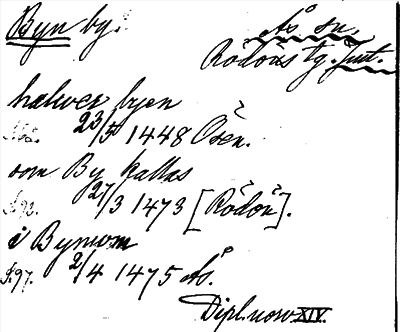 Byn by. Ås sn.
Rödöns tg. Jmt.
halwer byen
23/5 1448 Ösen.
som By kallas
S.92. 27/3 1473 [Rödön].
i Bynom
S.97. 2/4 1475 Ås.
Dipl. norv XIV.